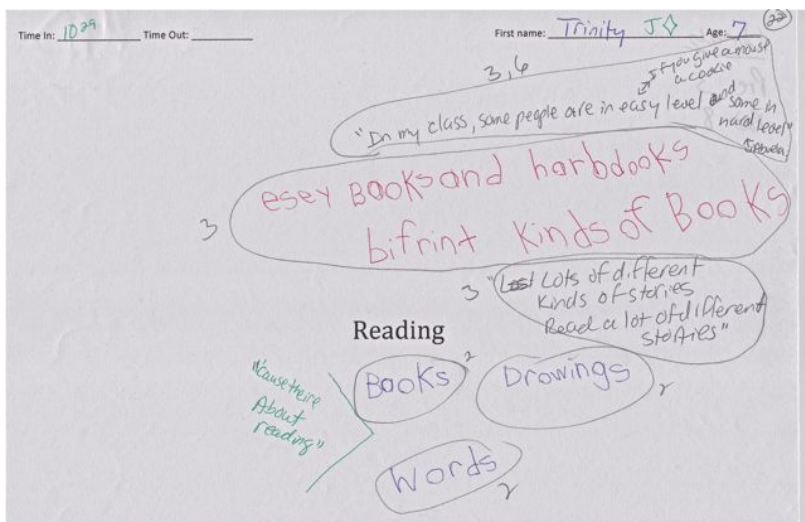 22
Time In: 10 29 Time Out: First name: Trinity J Age: 7
3,6
If you give a mouse
a cookie
"In my class, some people are in easy level and some in
hard level"
3
esey Books and harbdooks
bifrint Kinds of Books
3 "Lots of different
Kinds of stories
Read a lot of different
stories"
Reading
"'cause theire
About
reading"
Books 2 Drowings 2
Words 2